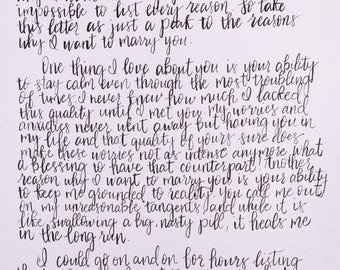 impossible to list every reason. So take
this letter as just a peak to the reasons
why I want to marry you.
One thing I love about you is your ability
to stay calm even through the most troubling
of times. I never knew how much I lacked
this quality until I met you. My worries and
anxieties never went away but having you in
my life and that quality of yours sure does
make these worries not as intense anymore. What
a blessing to have that counterpart. Another
reason why I want to marry you is your ability
to keep me grounded to reality. You call me out
on my unreasonable tangents and while it is
like swallowing a big, nasty pill, it heals me
in the long run.
I could go on and on for hours listing